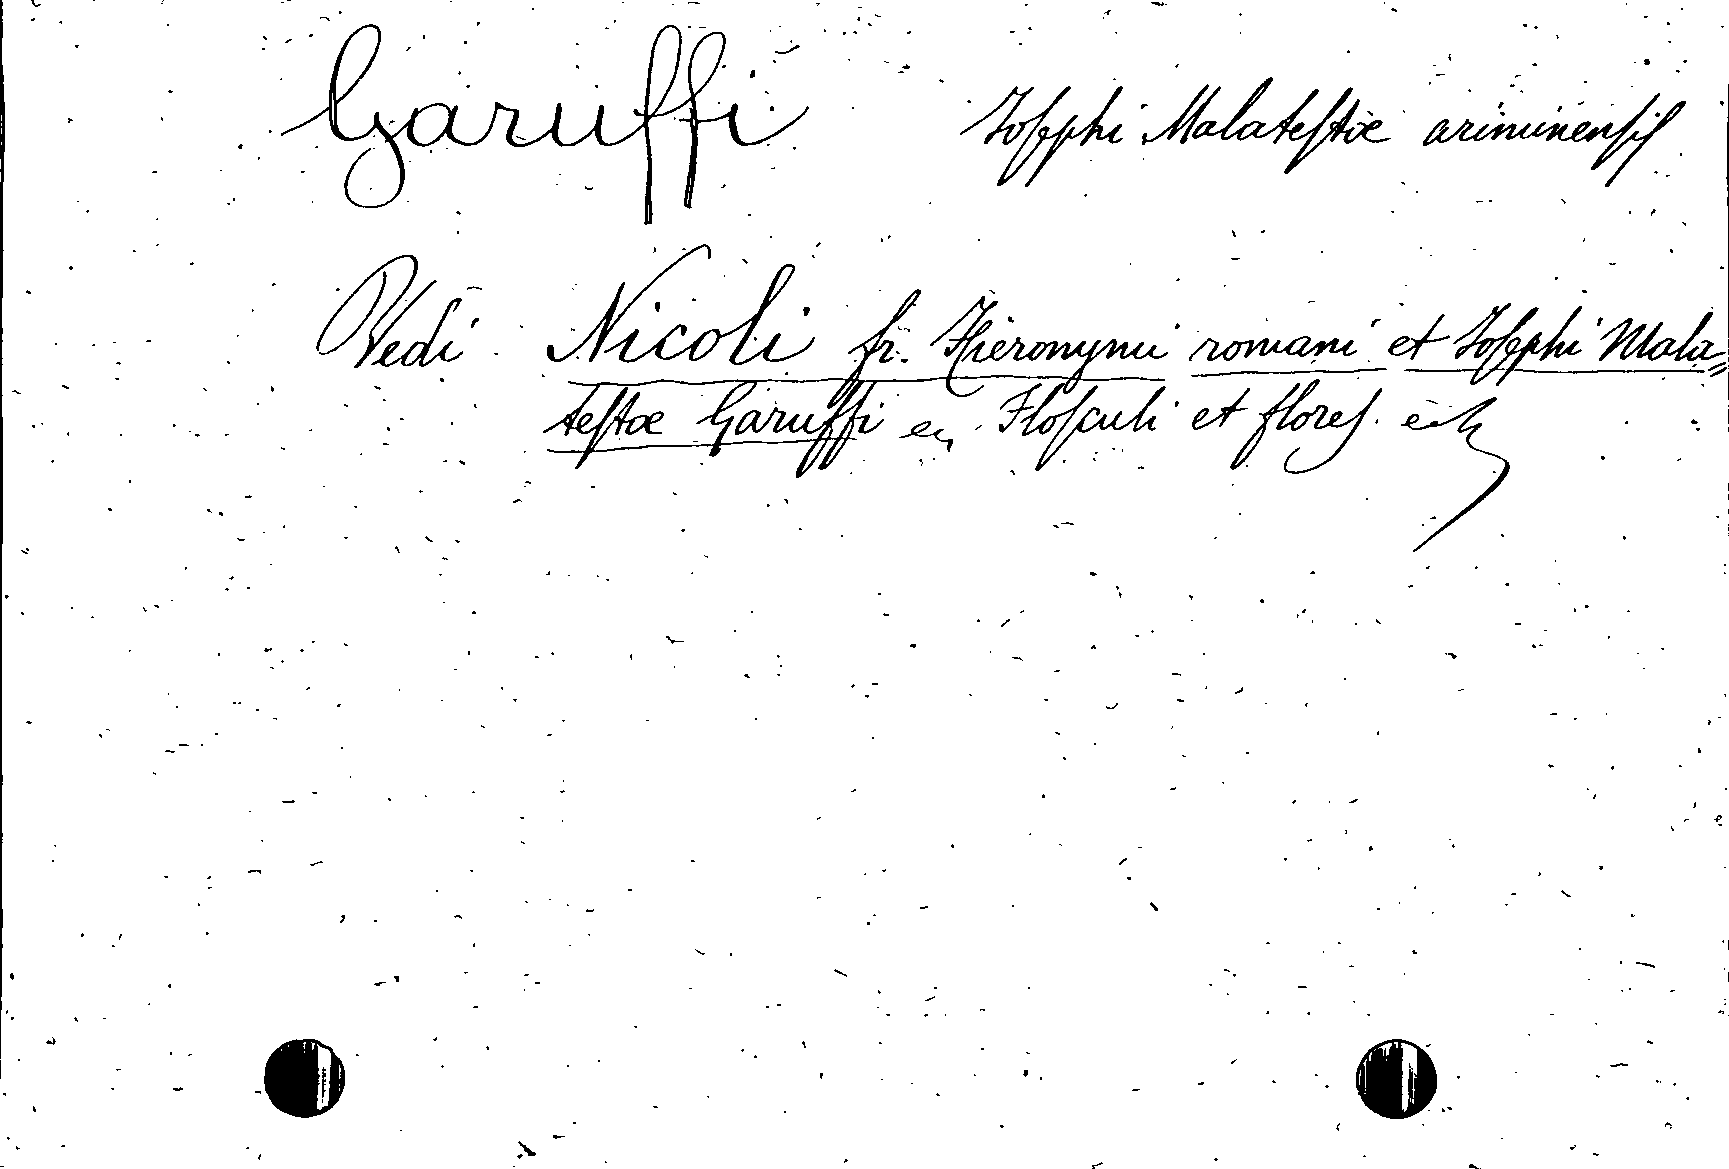 Garuffi Josephi Malatestæ ariminensis
Vedi Nicoli fr. Hieronymi romani et Josephi Mala=
testæ Garuffi en Flosculi et flores. etc